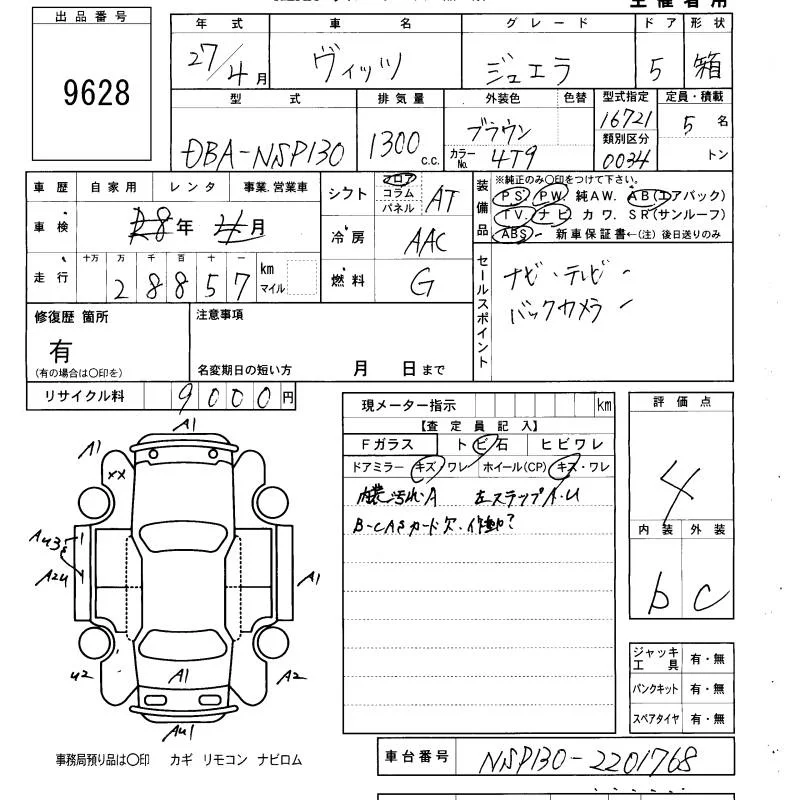 出品番号
9628
年式 車名 グレード ドア 形状
27/4月 ヴィッツ ジュエラ 5 箱
型式 排気量 外装色 色替 型式指定 定員・積載
DBA-NSP130 1300c.c. ブラウン 16721 5名
カラーNo. 4T9 類別区分 0034 トン
車歴 自家用 レンタ 事業.営業車
シフト フロア コラム パネル AT
装備品
※純正のみ〇印をつけて下さい。
PS. PW. 純AW. AB(エアバック)
TV. ナビ カワ. SR(サンルーフ)
ABS 新車保証書←(注) 後日送りのみ
車検 年 月
冷房 AAC
走行 十万 万 千 百 十 一
28857 km マイル
燃料 G
セールスポイント
ナビ・テレビ
バックカメラ
修復歴 箇所
有
(有の場合は〇印を)
注意事項
名変期日の短い方 月 日まで
リサイクル料 9000円
現メーター指示 km
【査定員記入】
Fガラス トビ石 ヒビワレ
ドアミラー キズ・ワレ ホイール(CP) キズ・ワレ
汚れA 左ステップA・U
B-CASカード欠・作動?
評価点
4
内装 外装
b C
A1
A1
XX
A2U
A1
U2
A1
A2
AU1
ジャッキ工具 有・無
パンクキット 有・無
スペアタイヤ 有・無
事務局預り品は〇印 カギ リモコン ナビロム
車台番号 NSP130-2201768